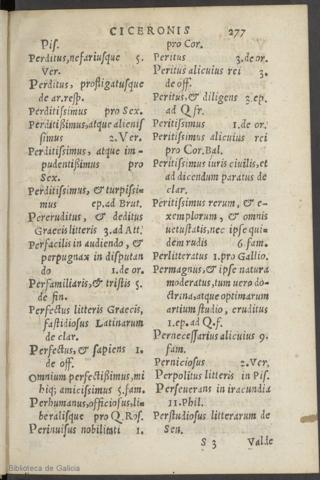 CICERONIS 277
Pis.
Perditus, nefariusque 5.
Ver.
Perditus, profligatusque
de ar. resp.
Perditissimus pro Sex.
Perditißimus, atque alienis
simus 2. Ver.
Perditissimus, atque im-
pudentißimus pro
Sex.
Perditissimus, & turpissi-
mus ep. ad Brut.
Pereruditus, & deditus
Græcis litteris 3. ad Att.
Perfacilis in audiendo, &
perpugnax in disputan
do 1. de or.
Perfamiliaris, & tristis 5.
de fin.
Perfectus litteris Græcis,
fastidiosus Latinarum
de clar.
Perfectus, & sapiens 1.
de off.
Omnium perfectißimus, mi
hiq; amicissimus 5. fam.
Perhumanus, officiosus, li-
beralisque pro Q. Ros.
Perinuisus nobilitati 1.
pro Cor.
Peritus 3. de or.
Peritus alicuius rei 3.
de off.
Peritus, & diligens 2. ep.
ad Q. fr.
Peritissimus 1. de or.
Peritissimus alicuius rei
pro Cor. Bal.
Peritissimus iuris ciuilis, et
ad dicendum paratus de
clar.
Peritissimus rerum, & e-
xemplorum, & omnis
uetustatis, nec ipse qui-
dem rudis 6. fam.
Perlitteratus 1. pro Gallio.
Permagnus, & ipse natura
moderatus, tum uero do-
ctrina, atque optimarum
artium studio, eruditus
1. ep. ad Q. f.
Pernecessarius alicuius 9.
fam.
Perniciosus 2. Ver.
Perpolitus litteris in Pis.
Perseuerans in iracundia
11. Phil.
Perstudiosus litterarum de
Sen.
S 3 Valde
Biblioteca de Galicia